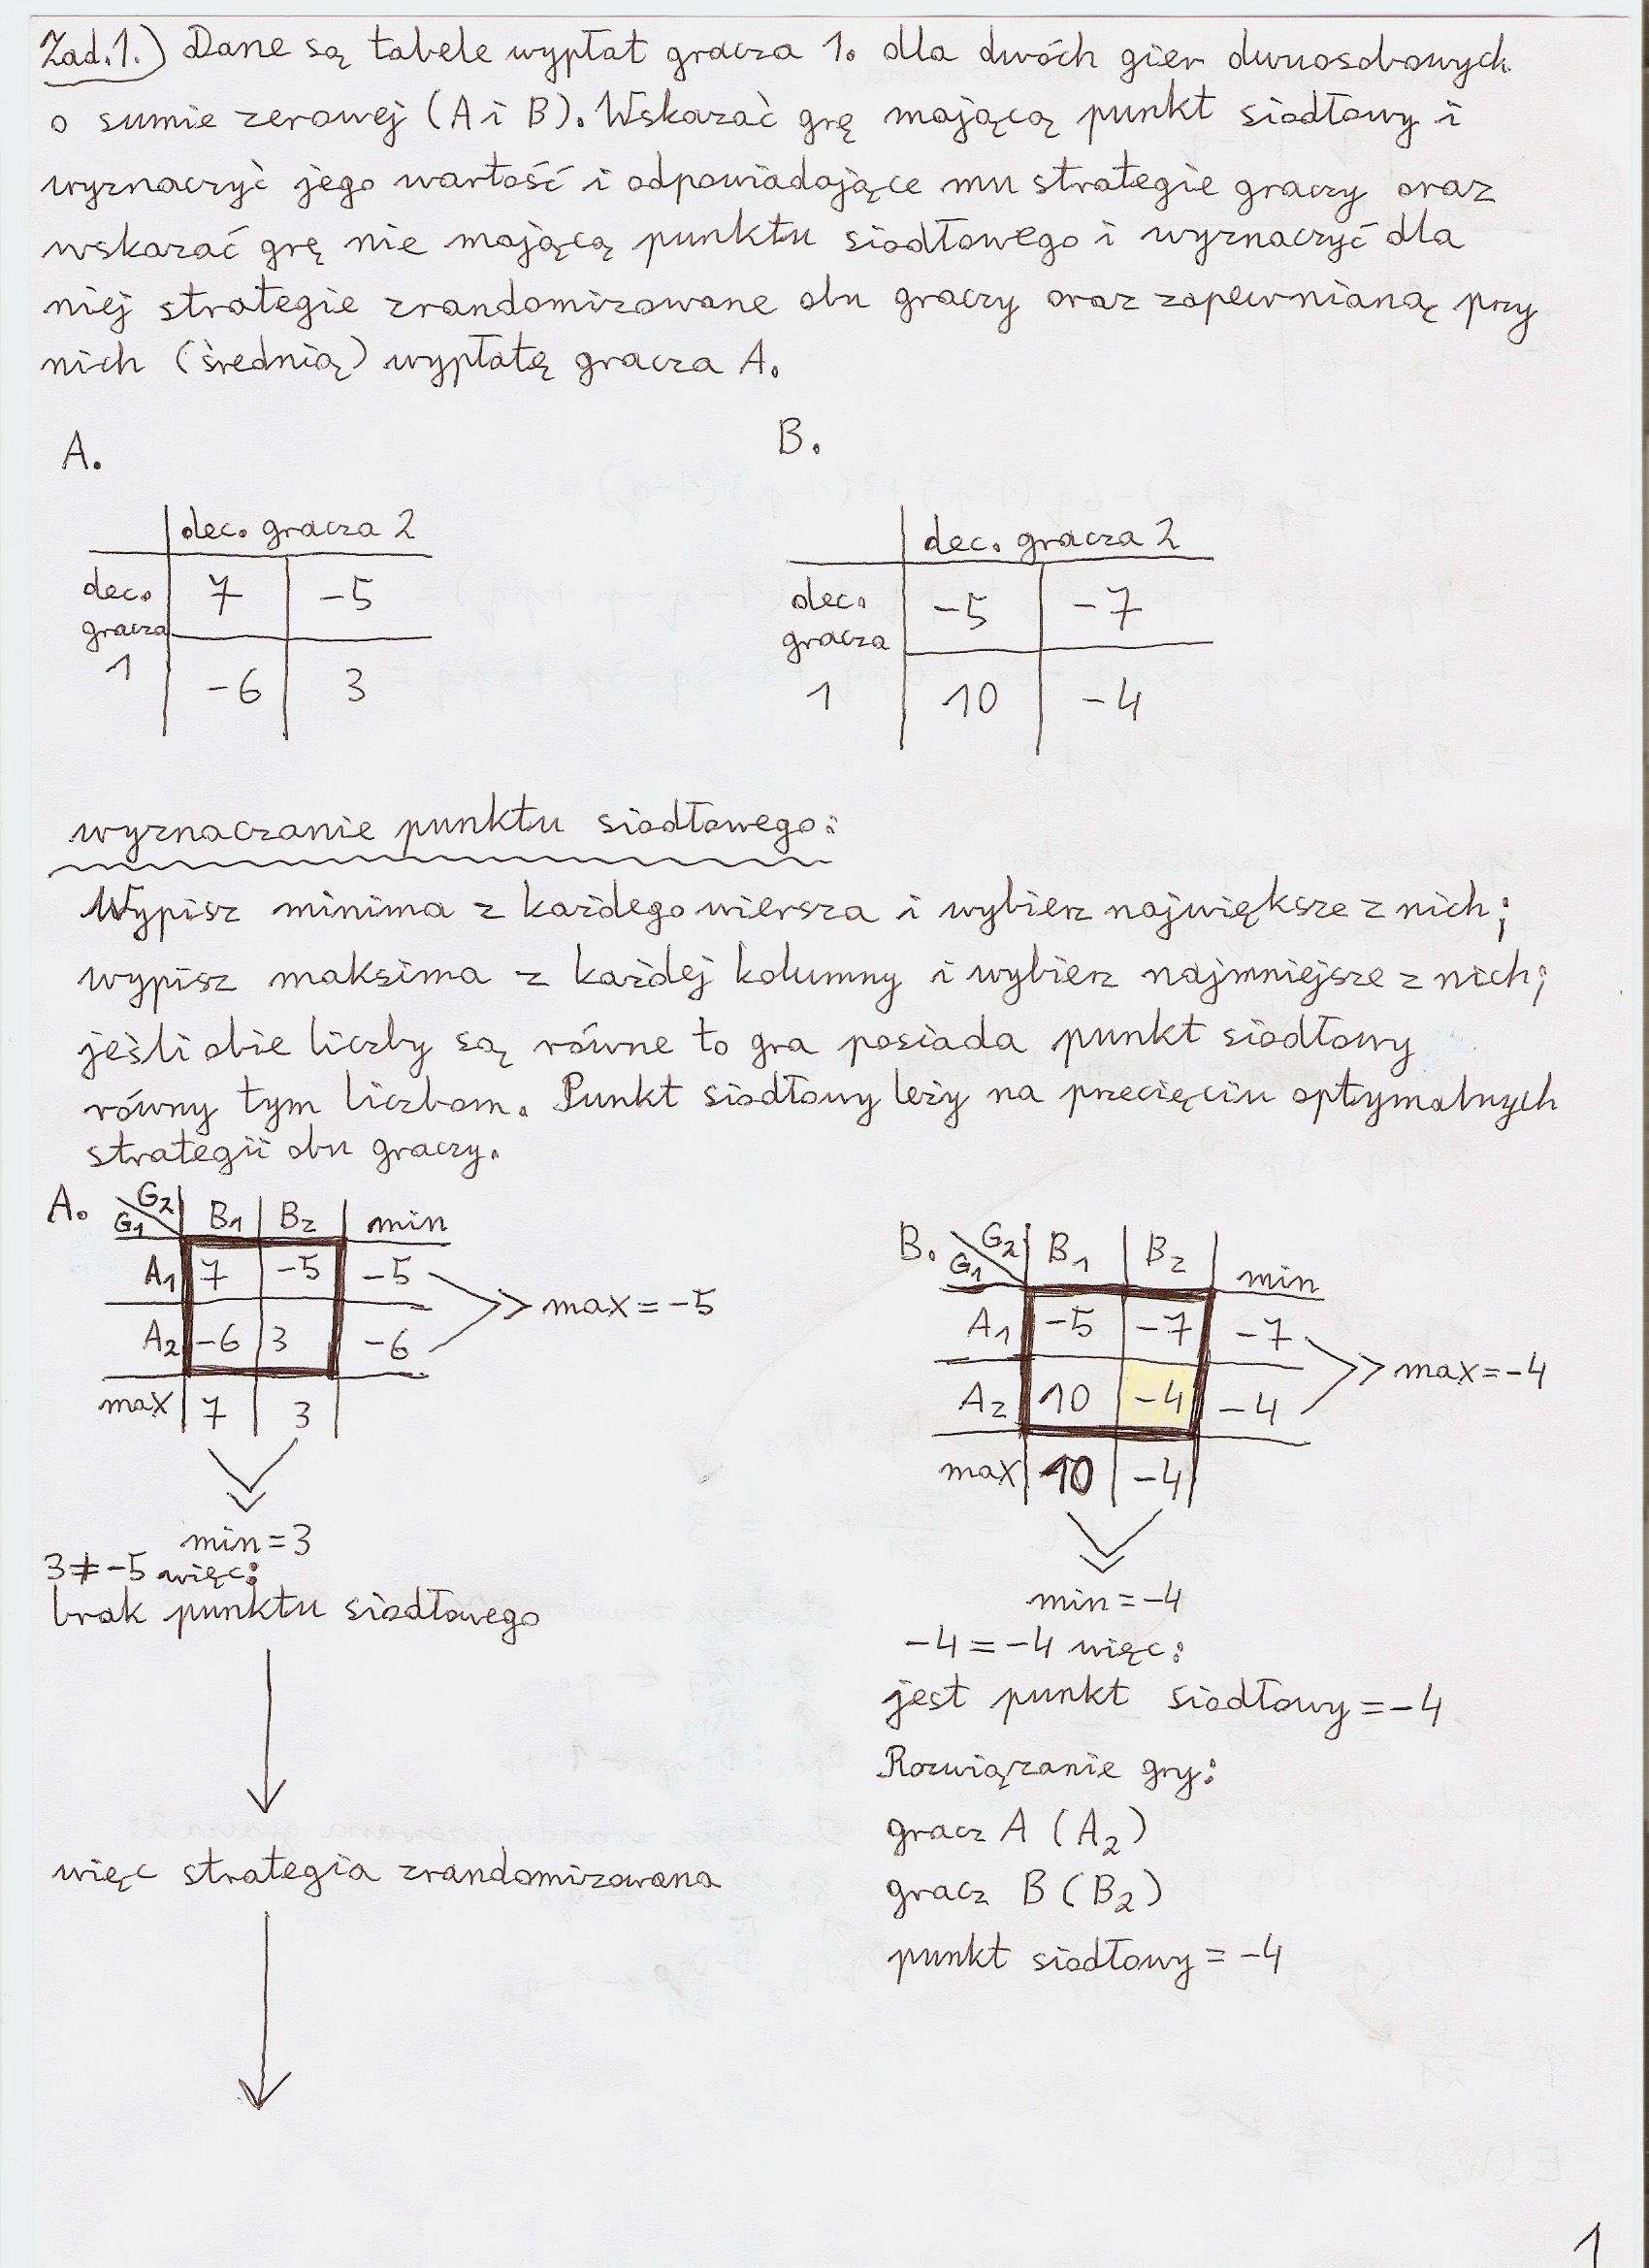 Zad.1.) Dane są tabele wypłat gracza 1. dla dwóch gier dwuosobowych
o sumie zerowej (A i B). Wskazać grę mającą punkt siodłowy i
wyznaczyć jego wartość i odpowiadające mu strategie graczy oraz
wskazać grę nie mającą punktu siodłowego i wyznaczyć dla
niej strategie zrandomizowane obu graczy oraz zapewnianą przy
nich (średnią) wypłatę gracza A.
A.
dec. gracza 2
dec. 7 -5
gracza
1 -6 3
B.
dec. gracza 2
dec. -5 -7
gracza
1 10 -4
wyznaczanie punktu siodłowego:
Wypisz minima z każdego wiersza i wybierz największe z nich;
wypisz maksima z każdej kolumny i wybierz najmniejsze z nich;
jeśli obie liczby są równe to gra posiada punkt siodłowy
równy tym liczbom. Punkt siodłowy leży na przecięciu optymalnych
strategii obu graczy.
A. G2 G1 B1 B2 min
A1 7 -5 -5
>> max = -5
A2 -6 3 -6
max 7 3
min = 3
3 ≠ -5 więc:
brak punktu siodłowego
więc strategia zrandomizowana
B. G2 G1 B1 B2 min
A1 -5 -7 -7
>> max = -4
A2 10 -4 -4
max 10 -4
min = -4
-4 = -4 więc:
jest punkt siodłowy = -4
Rozwiązanie gry:
gracz A (A2)
gracz B (B2)
punkt siodłowy = -4
1